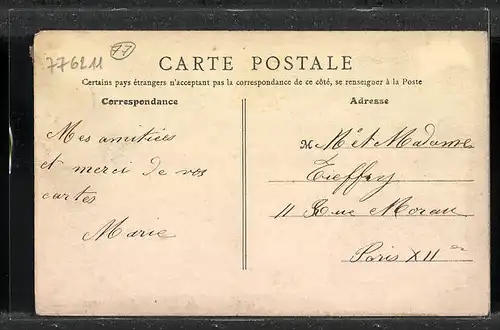 776211
77
CARTE POSTALE
Certains pays étrangers n'acceptant pas la correspondance de ce côté, se renseigner à la Poste
Correspondance
Adresse
Mes amitiées
et merci de vos
cartes
Marie
M M et Madame
Tieffry
11 Rue Moreau
Paris XII